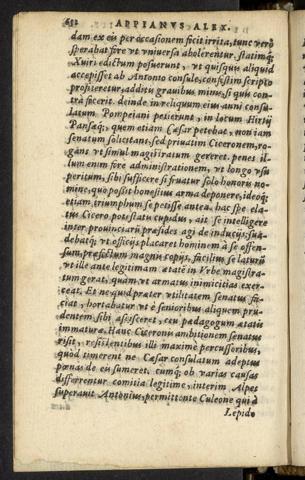 APPIANVS ALEX.
dam ex eis per occasionem ficit irrita, tunc verò
sperabat fore vt vniuersa abolerentur. statimq́;
Xuiri edictum posuerunt, vt quisquis aliquid
accepisset ab Antonio consule, confestim scripto
profiteretur, additis grauibus minis, si quis con-
trà fecerit. deinde in reliquum eius anni consu-
latum Pompeiani petierunt, in locum Hirtij
Pansæq́;, quem etiam Cæsar petebat, non iam
senatum solicitans, sed priuatim Ciceronem, ro-
gans vt simul magistratum gererent. penes il-
lum enim fore administrationem, vt longo vsu
peritum, sibi sufficere si fruatur solo honoris no-
mine, quo possit honestius arma deponere, ideoq́;
etiam triumphum se petisse antea. hac spe ela-
tus Cicero potestatis cupidus, ait se intelligere
inter prouinciarũ præsides agi de inducijs: sua-
debatq́; vt officijs placaret hominem à se offen-
sum, præfectum magnis copijs, facilius se laturũ
vt ille ante legitimam ætatẽ in Vrbe magistra-
tum gerat, quàm vt armatus inimicitias exer-
ceat. Et ne quid præter vtilitatem senatus fa-
ciat, hortabatur vt è senioribus aliquem pru-
dentem sibi ascisceret, ceu pædagogum ætatis
immaturæ. Hanc Ciceronis ambitionem senatus
risit, resistentibus illi maximè percussoribus,
quòd timerent ne Cæsar consulatum adeptus
pœnas de eis sumeret. cumq́; ob varias causas
differrentur comitia legitime, interim Alpes
superauit Antonius, permittente Culeone qui à
Lepido